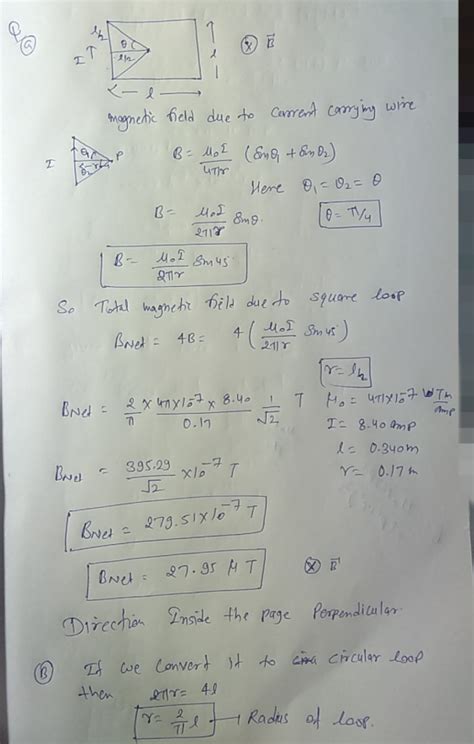 Q
(a) l/2 θ l/2 I ↑ l ⊗ B⃗
← l →
magnetic field due to current carrying wire
I θ₁ θ₂ r P B = μ₀I/4πr (Sinθ₁ + Sinθ₂)
Here θ₁ = θ₂ = θ
B = μ₀I/2πr Sinθ. θ = π/4
B = μ₀I/2πr Sin45
So Total magnetic field due to square loop
BNet = 4B = 4 (μ₀I/2πr Sin45)
r = l/2
BNet = 2/π × 4π×10⁻⁷ × 8.40/0.17 1/√2 T μ₀ = 4π×10⁻⁷ Tm/Amp
I = 8.40 amp
l = 0.340m
r = 0.17m
BNet = 395.29/√2 ×10⁻⁷ T
BNet = 279.51×10⁻⁷ T
BNet = 27.95 μT ⊗ B⃗
Direction Inside the page Perpendicular.
(B) If we convert it to circular loop
then 2πr = 4l
r = 2/π l → Radius of loop.